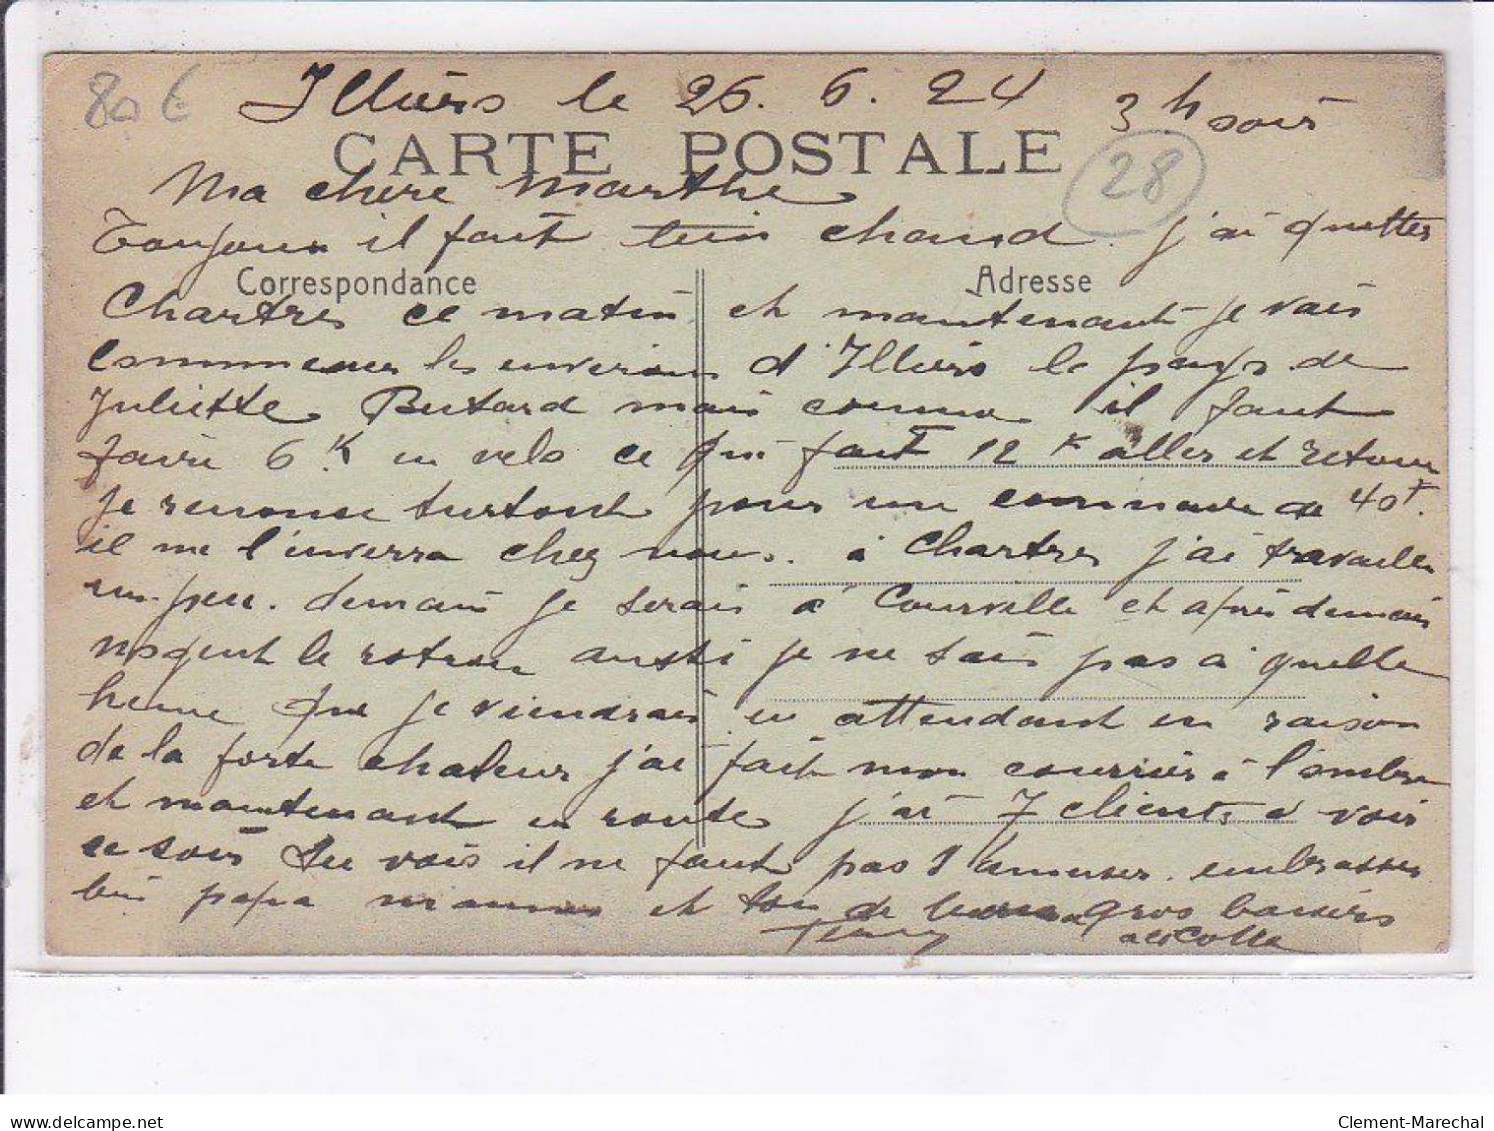 80 €
Illiers le 26. 6. 24 3h soir
CARTE POSTALE
28
Ma chere Marthe
Toujours il fait bien chaud. j'ai quitter
Correspondance Adresse
Chartres ce matin et maintenant je vais
commencer les environs d'Illiers le pays de
Juliette Butard mais comme il faut
faire 6 K en velo ce qui fait 12 K aller et retour
je renonce surtout pour une commande de 40F.
il me l'enverra chez nous. à Chartres j'ai travailler
un peu. demain je serais à Courville et apres demain
nogent le rotrou aussi je ne sais pas a quelle
heure que je viendrais en attendant en raison
de la forte chaleur j'ai fait mon courrier à l'ombre
et maintenant en route j'ai 7 clients a voir
ce soir tu vois il ne faut pas s'amuser. embrasser
bien papa maman et ton de gros baisers
a la Colle
delcampe.net
Clement-Marechal